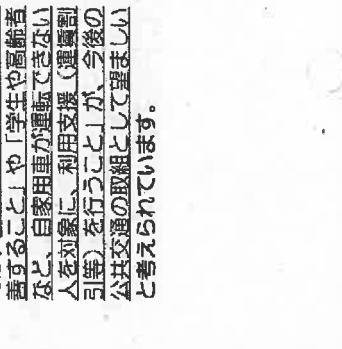 善すること」や「学生や高齢者
など、自家用車が運転できない
人を対象に、利用支援（運賃割
引等）を行うこと」が、今後の
公共交通の取組として望ましい
と考えられています。